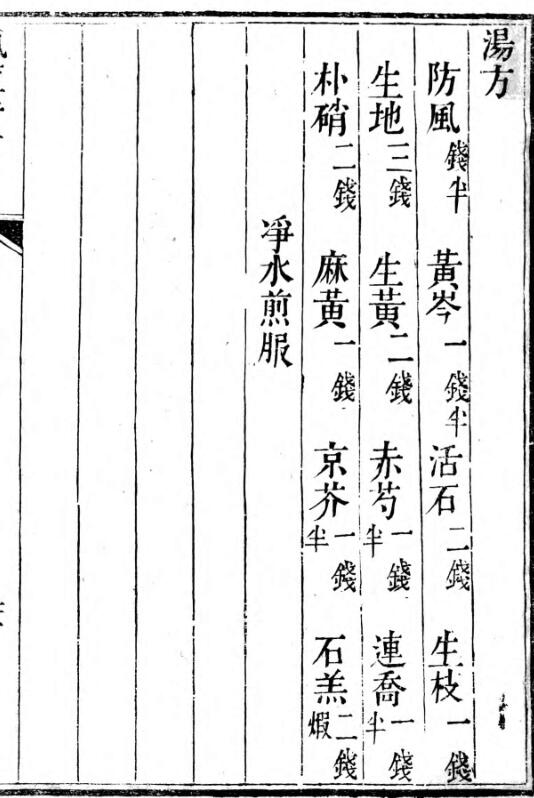 湯方
防風錢半 黃岑一錢半 活石二錢 生枝一錢
生地三錢 生黃二錢 赤芍一錢半 連喬一錢半
朴硝二錢 麻黃一錢 京芥一錢半 石羔二錢煆
凈水煎服